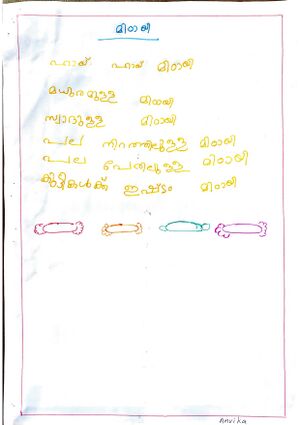 മിഠായി
ഹായ് ഹായ് മിഠായി
മധുരമുള്ള മിഠായി
സ്വാദുള്ള മിഠായി
പല നിറത്തിലുള്ള മിഠായി
പല പേരിലുള്ള മിഠായി
കുട്ടികൾക്ക് ഇഷ്ടം മിഠായി
Anvika